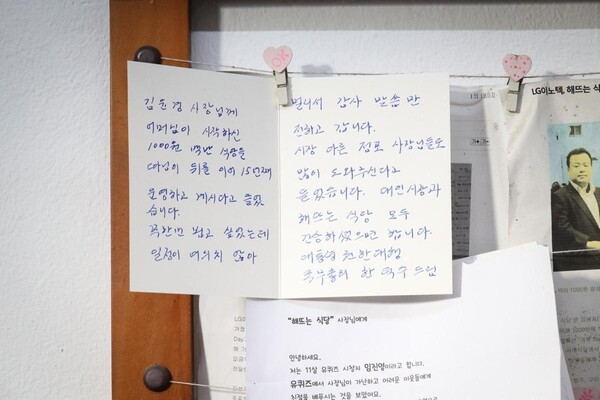 김윤경 사장님께
어머님이 시작하신
1000원 백반 식당을
따님이 뒤를 이어 15년째
운영하고 계시다고 들었
습니다.
꼭한번 뵙고 싶었는데
일정이 여의치 않아
만나서 감사 말씀만
전하고 갑니다.
시장 다른 점포 사장님들도
많이 도와주신다고
들었습니다. 대인시장과
해뜨는 식당 모두
건승하셨으면 합니다.
대통령 권한대행
국무총리 한덕수 드림
LG이노텍, 해뜨는 식
"해뜨는 식당" 사장님에게
안녕하세요.
저는 11살 유퀴즈 시청자 임진영이라고 합니다.
유퀴즈에서 사장님이 가난하고 어려운 이웃들에게
친절을 베푸시는 것을 보았어요.